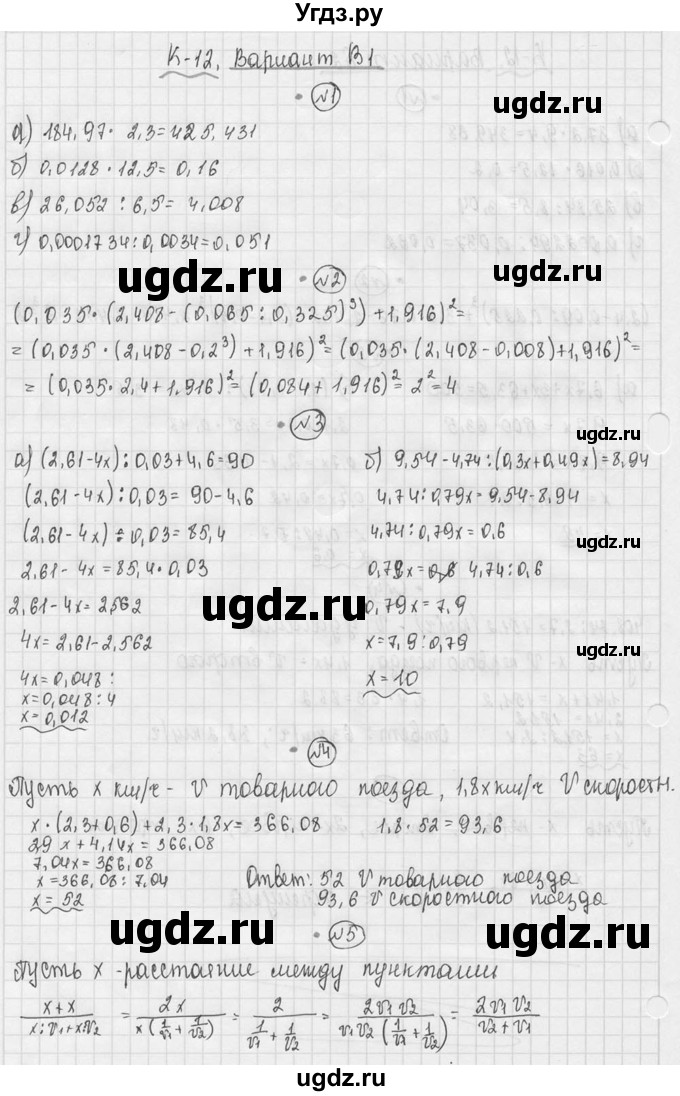 Угдз.ру
К-12, Вариант В1
• №1
а) 184,97 · 2,3 = 425,431
б) 0,0128 · 12,5 = 0,16
в) 26,052 : 6,5 = 4,008
г) 0,0001734 : 0,0034 = 0,051
• №2
(0,035 · (2,408 - (0,065 : 0,325)³) + 1,916)² =
= (0,035 · (2,408 - 0,2³) + 1,916)² = (0,035 · (2,408 - 0,008) + 1,916)² =
= (0,035 · 2,4 + 1,916)² = (0,084 + 1,916)² = 2² = 4
• №3
а) (2,61 - 4x) : 0,03 + 4,6 = 90
(2,61 - 4x) : 0,03 = 90 - 4,6
(2,61 - 4x) : 0,03 = 85,4
2,61 - 4x = 85,4 · 0,03
2,61 - 4x = 2,562
4x = 2,61 - 2,562
4x = 0,048 :
x = 0,048 : 4
x = 0,012
б) 9,54 - 4,74 : (0,3x + 0,49x) = 8,94
4,74 : 0,79x = 9,54 - 8,94
4,74 : 0,79x = 0,6
0,79x = 4,74 : 0,6
0,79x = 7,9
x = 7,9 : 0,79
x = 10
• №4
Пусть x км/ч - V товарного поезда, 1,8x км/ч V скоростн.
x · (2,3 + 0,6) + 2,3 · 1,8x = 366,08
2,9 x + 4,14x = 366,08
7,04x = 366,08
x = 366,08 : 7,04
x = 52
1,8 · 52 = 93,6
Ответ: 52 V товарного поезда
93,6 V скоростного поезда
• №5
Пусть x - расстояние между пунктами
(x + x)/(x : v₁ + x : v₂) = 2x/(x(1/v₁ + 1/v₂)) = 2/(1/v₁ + 1/v₂) = 2v₁v₂/(v₁v₂(1/v₁ + 1/v₂)) = 2v₁v₂/(v₂ + v₁)
ugdz.ru
ugdz.ru
ugdz.ru
ugdz.ru
ugdz.ru
ugdz.ru
ugdz.ru
ugdz.ru
ugdz.ru
ugdz.ru
ugdz.ru
ugdz.ru
ugdz.ru